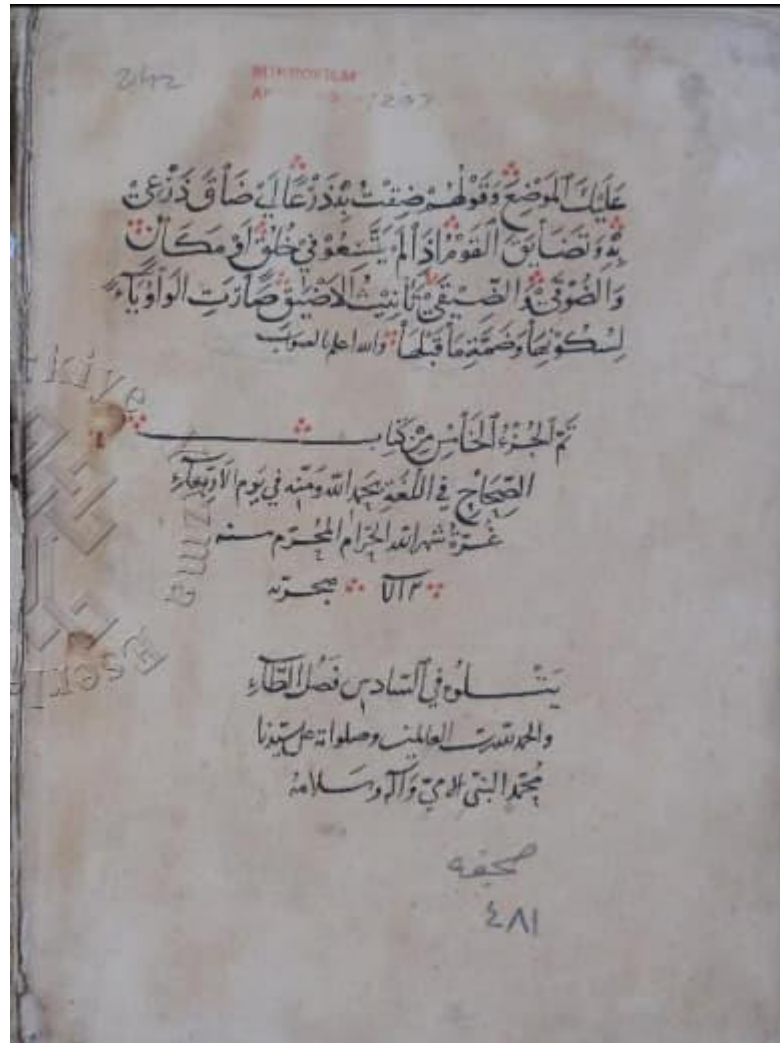 242
MIKROFILM
عَلَيْكَ اَلمَوْضِعُ وَقَوْلُهُمْ ضِقْتُ بِهِ ذَرْعًا اَيْ ضَاقَ ذَرْعِيْ
بِهِ وَتَضَايَقَ اَلقَوْمُ اِذَا لَمْ يَتَّسِعُوْا فِيْ خُلُقٍ اَوْ مَكَانٍ
وَالضُّوْقَىْ وَالضِّيْقَىْ تَأْنِيْثُ الْاَضْيَقِ صَارَتِ الْوَاوُ يَاءً
لِسُكُوْنِهَا وَضَمَّةِ مَا قَبْلَهَا والله اعلم بالصوب
تَمَّ اَلجُزْءُ اَلخَامِسُ مِنْ كِتَابِ
الصِّحَاحِ فِي اللُّغَةِ بحمد الله ومَنِّه في يوم الاربعاء
غُرَّة شهر الله الحرام المُحرّم سنه
يَتْلوهُ في السَّادِسِ فَصْلُ الطَّاءِ
والحمد لله رب العالمين وصلواته على سيّدنا
مُحمّد النبيّ الامّيّ وآله وسلامه
صحيفه
٤٨١